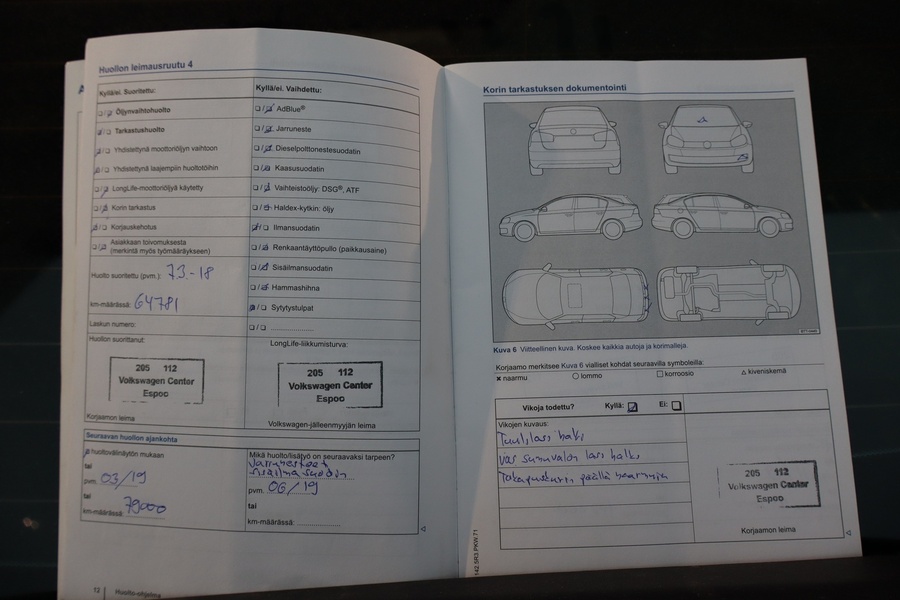 Huollon leimausruutu 4
Kyllä/ei. Suoritettu:
Öljynvaihtohuolto
Tarkastushuolto
Yhdistettynä moottoriöljyn vaihtoon
Yhdistettynä laajempiin huoltotöihin
LongLife-moottoriöljyä käytetty
Korin tarkastus
Korjauskehotus
Asiakkaan toivomuksesta
(merkintä myös työmääräykseen)
Huolto suoritettu (pvm.): 7.3.-18
km-määrässä: 64781
Laskun numero:
Huollon suorittanut:
205 112
Volkswagen Center
Espoo
Korjaamon leima
Kyllä/ei. Vaihdettu:
AdBlue®
Jarruneste
Dieselpolttonestesuodatin
Kaasusuodatin
Vaihteistoöljy: DSG®, ATF
Haldex-kytkin: öljy
Ilmansuodatin
Renkaantäyttöpullo (paikkausaine)
Sisäilmansuodatin
Hammashihna
Sytytystulpat
LongLife-liikkumisturva:
205 112
Volkswagen Center
Espoo
Volkswagen-jälleenmyyjän leima
Seuraavan huollon ajankohta
huoltovälinäytön mukaan
tai
pvm. 03/19
tai
km-määrässä: 79000
Mikä huolto/lisätyö on seuraavaksi tarpeen?
Jarruneste+
sisäilmasuodin
pvm. 06/19
tai
km-määrässä:
12 Huolto-ohjelma
Korin tarkastuksen dokumentointi
Kuva 6 Viitteellinen kuva. Koskee kaikkia autoja ja korimalleja.
Korjaamo merkitsee Kuva 6 vialliset kohdat seuraavilla symboleilla:
× naarmu ○ lommo □ korroosio △ kiveniskemä
Vikoja todettu? Kyllä: Ei:
Vikojen kuvaus:
Tuulilasi halki
vas sumuvalon lasi halki
Takapuskurin päällä naarmuja
205 112
Volkswagen Center
Espoo
Korjaamon leima
142.5R3.PKW.71